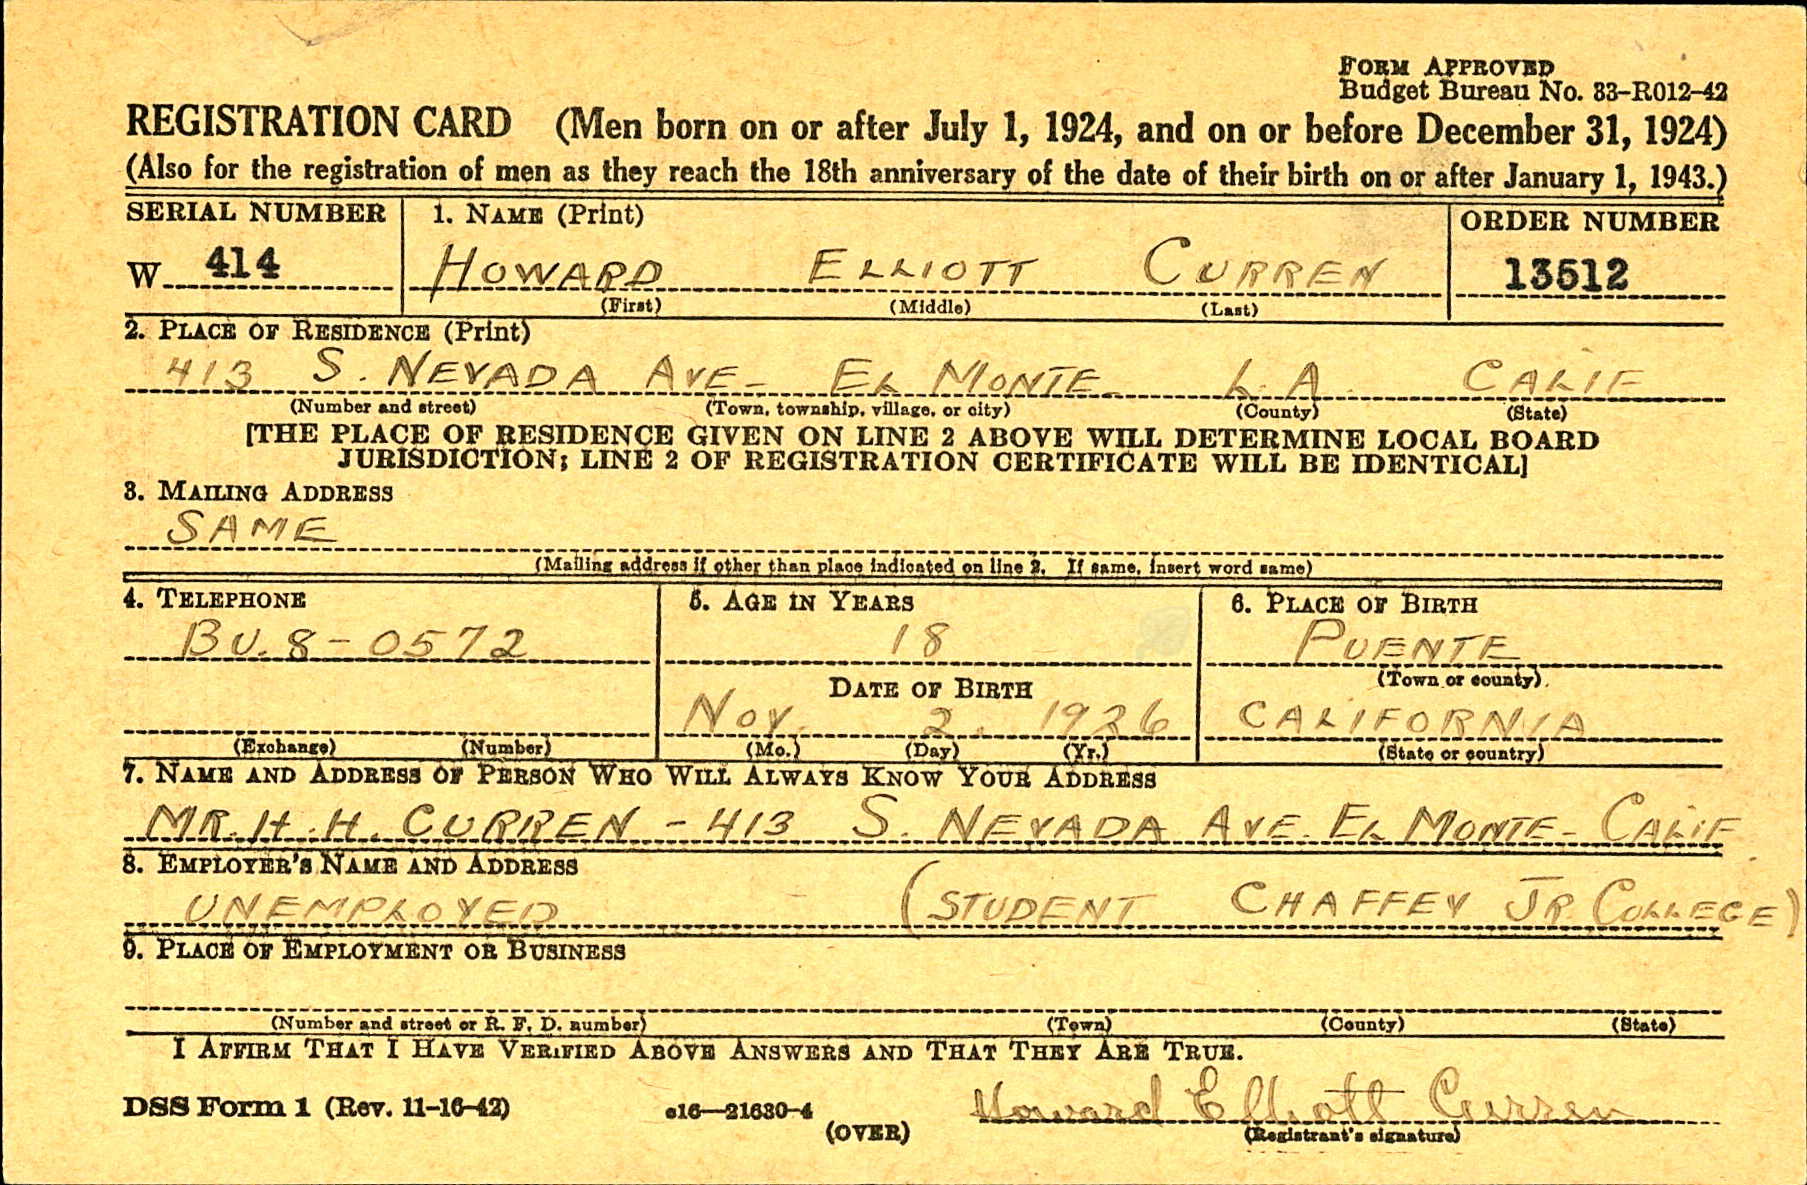 FORM APPROVED
Budget Bureau No. 33-R012-42
REGISTRATION CARD (Men born on or after July 1, 1924, and on or before December 31, 1924)
(Also for the registration of men as they reach the 18th anniversary of the date of their birth on or after January 1, 1943.)
SERIAL NUMBER 1. NAME (Print) ORDER NUMBER
W 414 HOWARD ELLIOTT CURREN 13512
(First) (Middle) (Last)
2. PLACE OF RESIDENCE (Print)
413 S. NEVADA AVE- EL MONTE- L.A. CALIF
(Number and street) (Town, township, village, or city) (County) (State)
[THE PLACE OF RESIDENCE GIVEN ON LINE 2 ABOVE WILL DETERMINE LOCAL BOARD
JURISDICTION; LINE 2 OF REGISTRATION CERTIFICATE WILL BE IDENTICAL]
3. MAILING ADDRESS
SAME
(Mailing address if other than place indicated on line 2. If same, insert word same)
4. TELEPHONE 5. AGE IN YEARS 6. PLACE OF BIRTH
BU. 8-0572 18 PUENTE
(Town or county)
DATE OF BIRTH
NOV. 2. 1926 CALIFORNIA
(Exchange) (Number) (Mo.) (Day) (Yr.) (State or country)
7. NAME AND ADDRESS OF PERSON WHO WILL ALWAYS KNOW YOUR ADDRESS
MR. H. H. CURREN - 413 S. NEVADA AVE. EL MONTE- CALIF
8. EMPLOYER'S NAME AND ADDRESS
UNEMPLOYED (STUDENT CHAFFEY JR. COLLEGE)
9. PLACE OF EMPLOYMENT OR BUSINESS
(Number and street or R. F. D. number) (Town) (County) (State)
I AFFIRM THAT I HAVE VERIFIED ABOVE ANSWERS AND THAT THEY ARE TRUE.
DSS Form 1 (Rev. 11-16-42) c16—21630-4 Howard Elliott Curren
(OVER) (Registrant's signature)